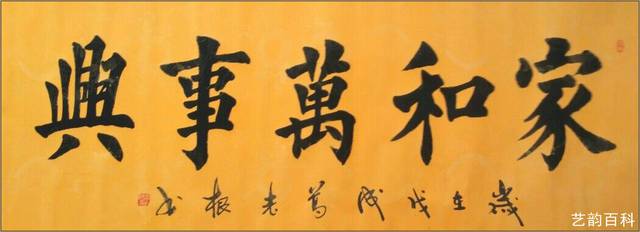 家和萬事興
歲在戊戌老根书
艺韵百科